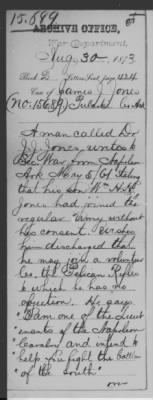 15,689
ARCHIVE OFFICE,
War Department,
Aug 30 1873
Book 2. Letters Sent, page 424
Case of James J Jones
(No: 15689) Pulaski Co. Ark
A man called Dr
J. J. Jones, writes
Sec. War from Napoleon
Ark May 5/61 Stating
that his son Wm H. H.
Jones had joined the
regular Army without
his consent. Wishes
him discharged that
he may join a volunteer
Co. the Pelican Rifles
to which he has no
objection. He says
"I am one of the Lieut
"enants of the Napoleon
"Cavalry and intend to
"help you fight the battles
"of the South"